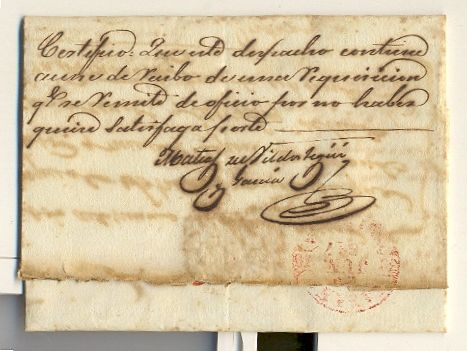 Certifico: Que este despacho contiene
acuse de recibo de una requisicion
qe. se remite de oficio por no haber
quien satisfaga porte
Mateo de
y Garcia